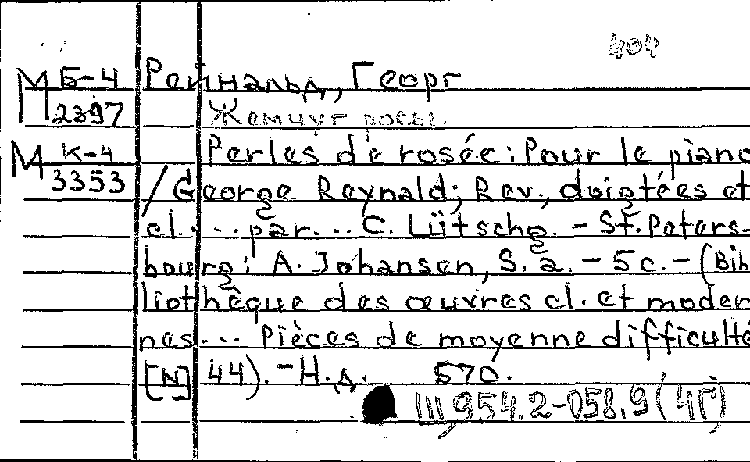 404
М Б-4 Рейнальд, Георг
2397 Жемчуг росы.
М К-4 Perles de rosée: Pour le piano
3353 / George Reynald; Rev., doigtées et
cl. ... par ... C. Lütschg. - St. Peters-
bourg: A. Johansen, S. a. - 5 c. - (Bib
liothèque des œuvres cl. et moder
nes... Pièces de moyenne difficulté
[N] 44). - Н.д. 570.
Ш 954.2-058.9(4Г)